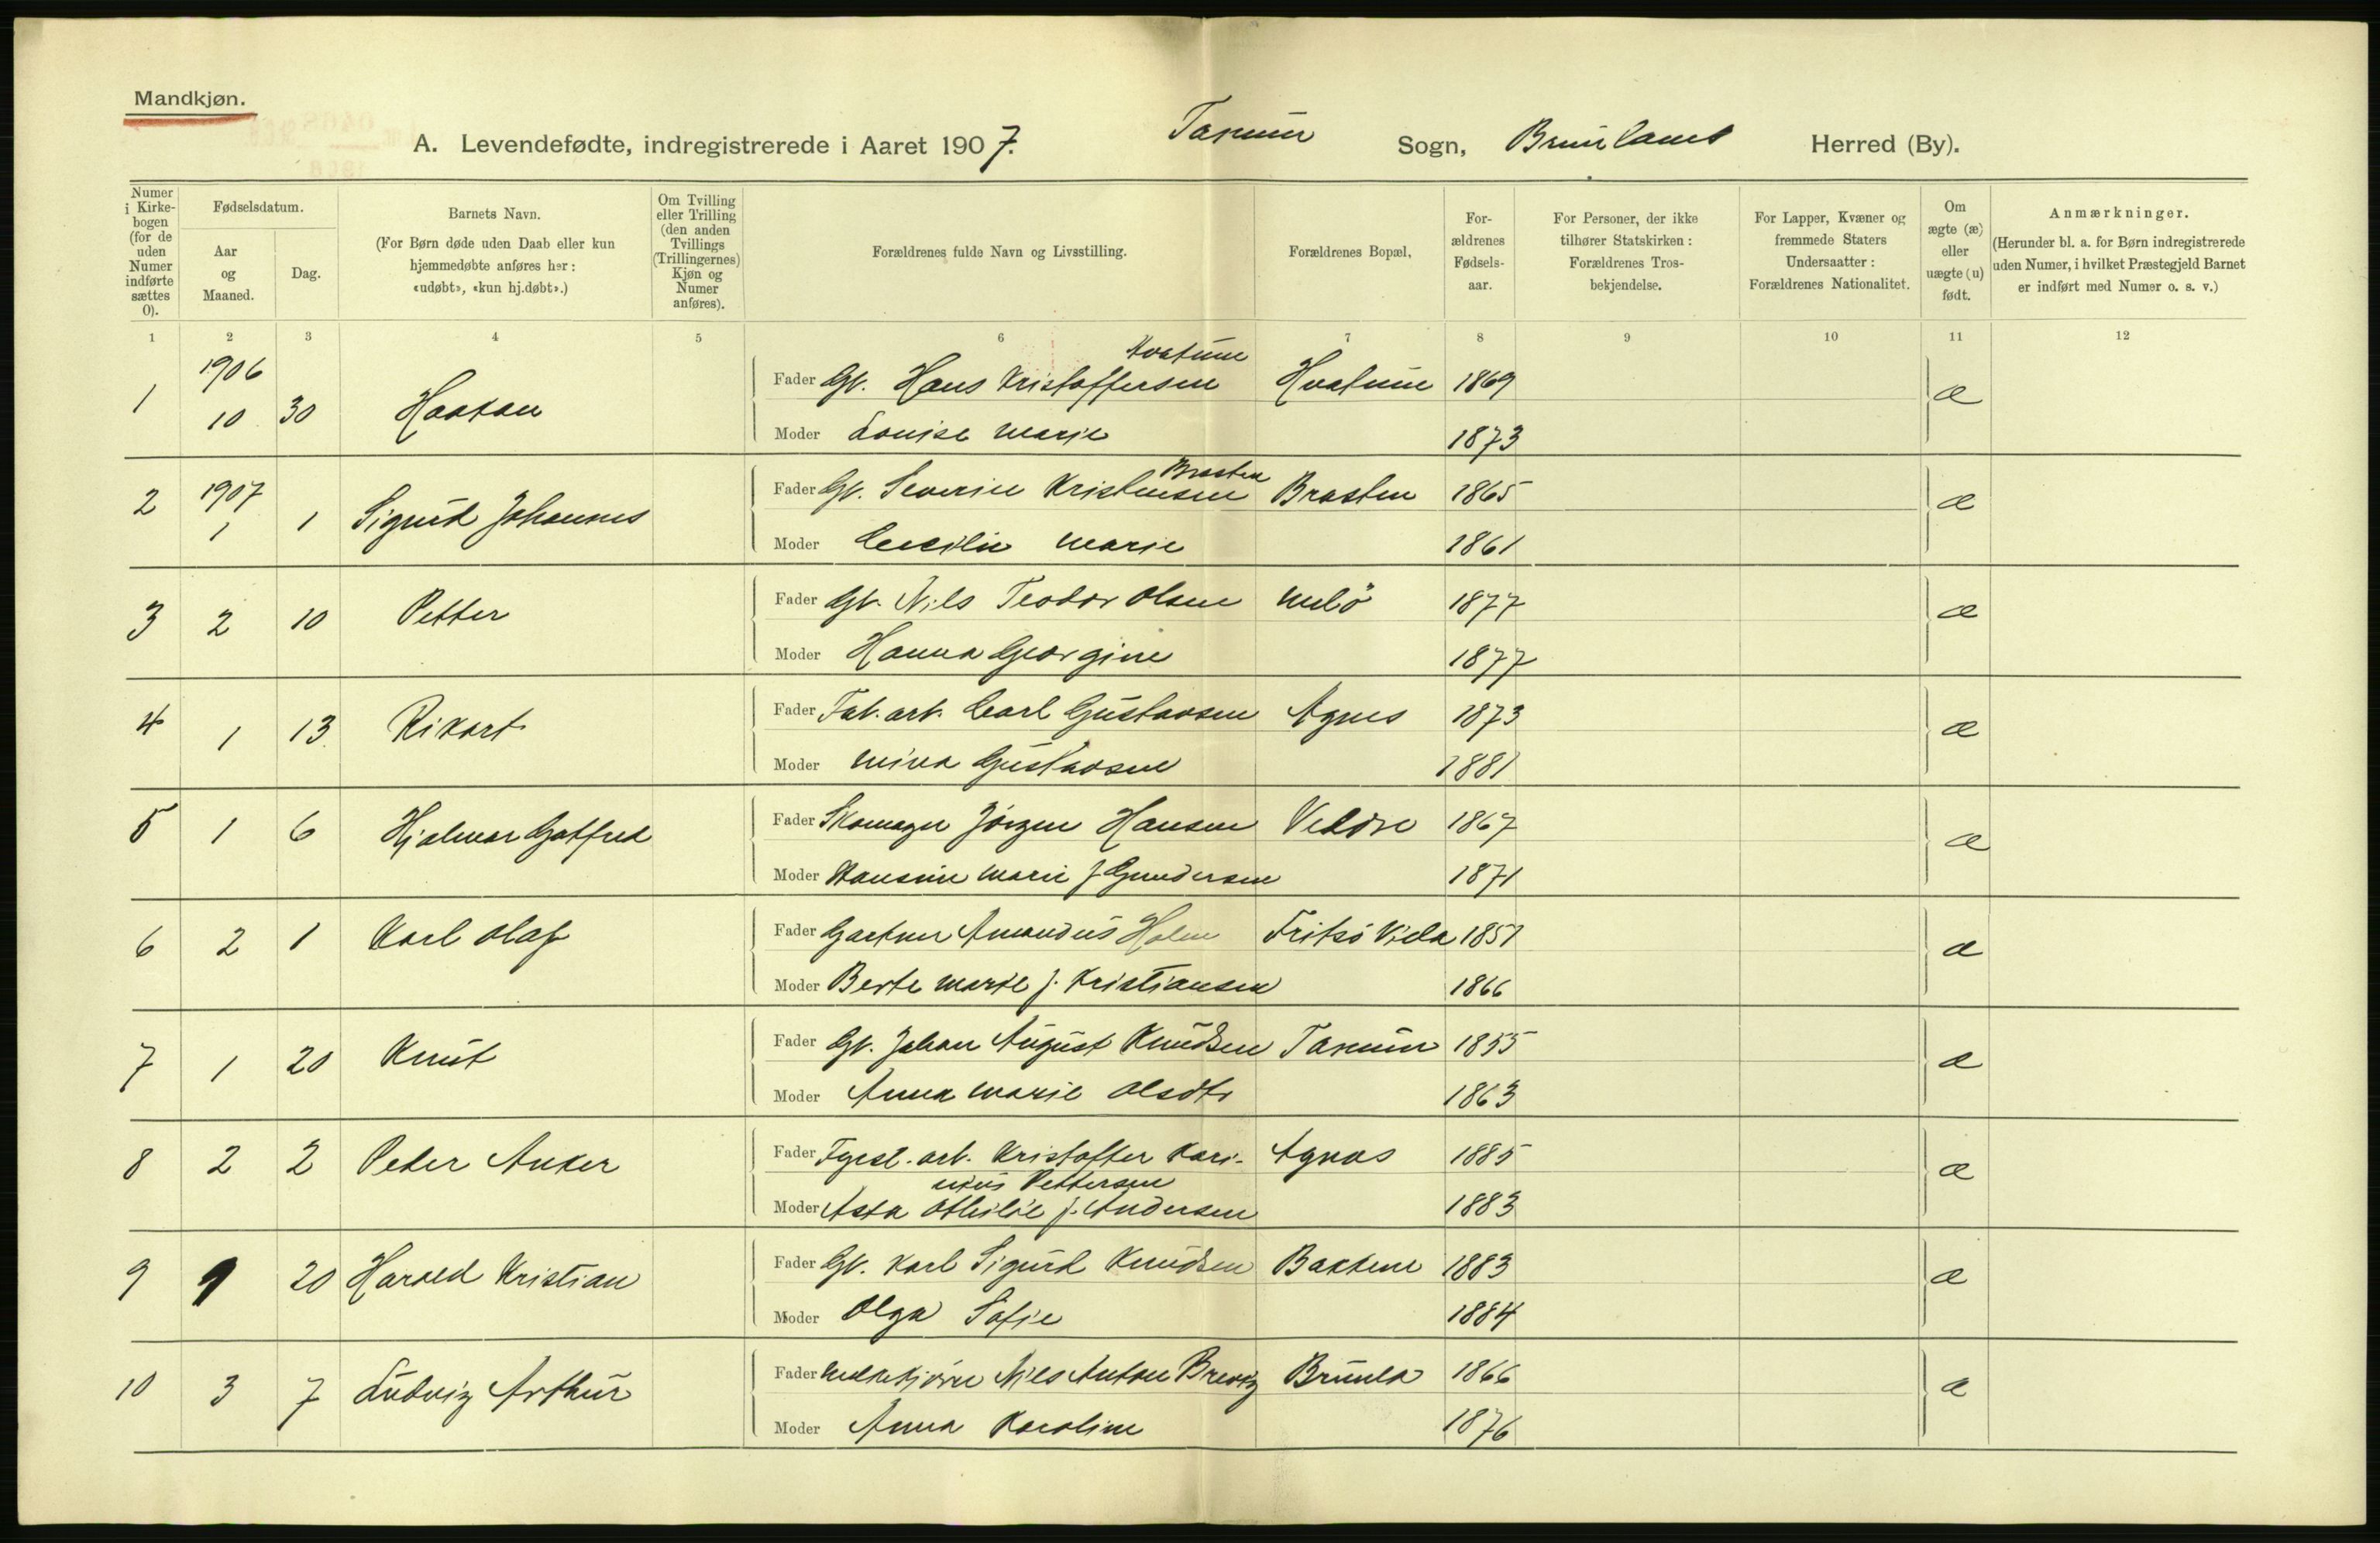 Mandkjøn.
A. Levendefødte, indregistrerede i Aaret 1907. Tanum Sogn, Brunlanes Herred (By).
Numer i Kirke-bogen (for de uden Numer indførte sættes 0).
Fødselsdatum.
Aar og Maaned.
Dag.
Barnets Navn.
(For Børn døde uden Daab eller kun hjemmedøbte anføres her: «udøbt», «kun hj.døbt».)
Om Tvilling eller Trilling (den anden Tvillings (Trillingernes) Kjøn og Numer anføres).
Forældrenes fulde Navn og Livsstilling.
Forældrenes Bopæl,
For-ældrenes Fødsels-aar.
For Personer, der ikke tilhører Statskirken: Forældrenes Tros-bekjendelse.
For Lapper, Kvæner og fremmede Staters Undersaatter: Forældrenes Nationalitet.
Om ægte (æ) eller uægte (u) født.
Anmærkninger.
(Herunder bl. a. for Børn indregistrerede uden Numer, i hvilket Præstegjeld Barnet er indført med Numer o. s. v.)
1 2 3 4 5 6 7 8 9 10 11 12
1 1906 10 30 Haakan Fader Gb. Hans Kristoffersen Hvatum Hvatum 1869 æ
Moder Louise Marie 1873
2 1907 1 1 Sigurd Johannes Fader Gb. Severin Kristensen Brasten Brasten 1865 æ
Moder Cecilie Marie 1861
3 2 10 Petter Fader Gb. Nils Teodor Olsen Melö 1877 æ
Moder Hanna Georgine 1877
4 1 13 Rikart Fader Fab. arb. Carl Gustavsen Agnes 1873 æ
Moder Mina Gustavsen 1881
5 1 6 Hjalmar Gotfred Fader Skomager Jörgen Hansen Veldre 1867 æ
Moder Hansine Marie f Gundersen 1871
6 2 1 Karl Olaf Fader Gartner Amandus Holm Fritsö Viela 1851 æ
Moder Berte Marie f. Kristiansen 1866
7 1 20 Knut Fader Gb. Johan August Knudsen Tanum 1855 æ
Moder Anna Marie Olsdtr 1863
8 2 2 Peder Anker Fader Fyrst. arb. Kristoffer Kari- Agnes 1885 æ
nius Pettersen
Moder Asta Othilie f. Andersen 1883
9 1 20 Harald Kristian Fader Gb. Karl Sigurd Knudsen Bakkene 1883 æ
Moder Olga Sofie 1884
10 3 7 Ludvig Arthur Fader Melkekjörer Nils Anton Brevig Brunla 1866 æ
Moder Anna Karoline 1876